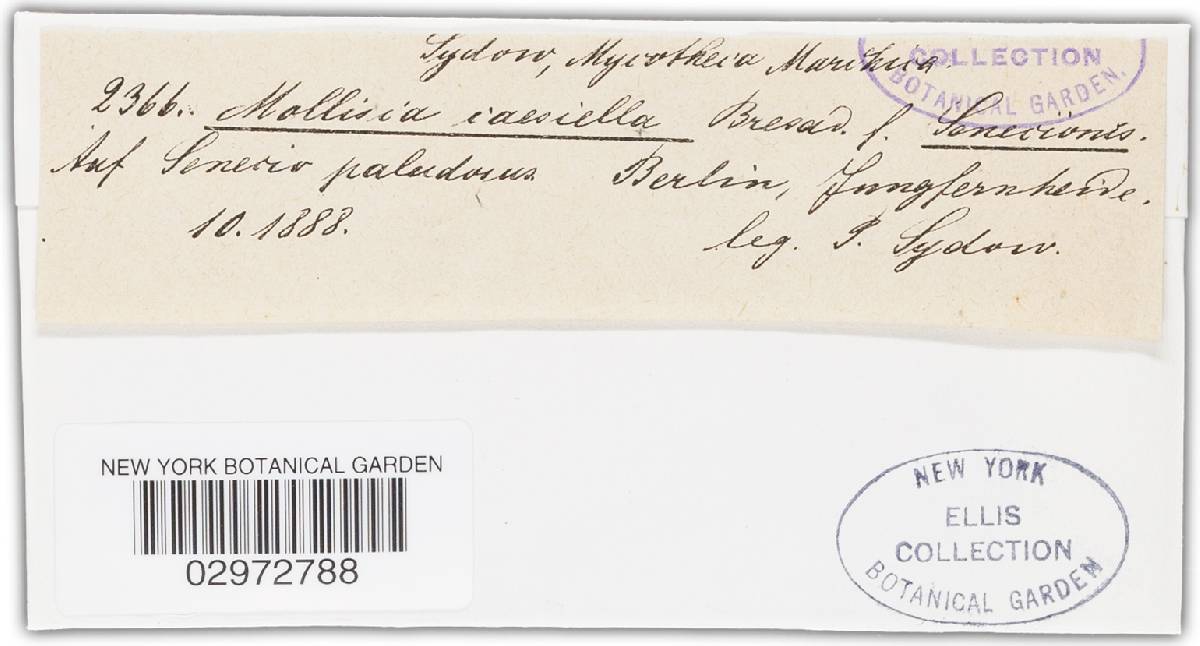 Sydow, Mycotheca Marchica
COLLECTION
BOTANICAL GARDEN.
2366. Mollisia caesiella Bresad. f. Senecionis.
Auf Senecio paludosus Berlin, Jungfernheide.
10.1888. leg. P. Sydow.
NEW YORK BOTANICAL GARDEN
02972788
NEW YORK
ELLIS
COLLECTION
BOTANICAL GARDEN